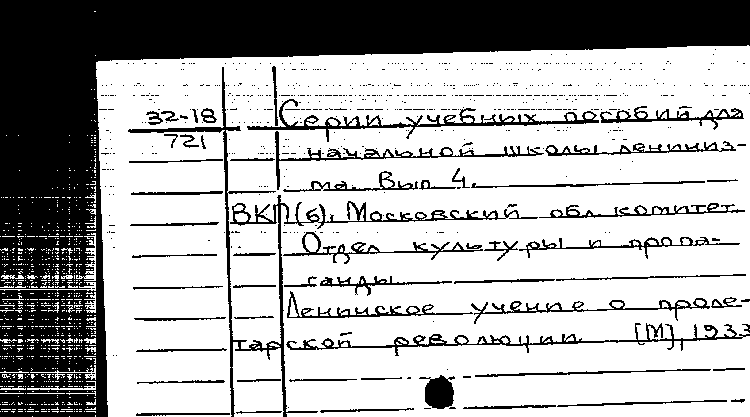 32-18
721
Серии учебных пособий для
начальной школы лениниз-
ма. Вып 4.
ВКП(б). Московский обл. комитет.
Отдел культуры и пропа-
ганды
Ленинское учение о проле-
тарской революции. [М], 1933